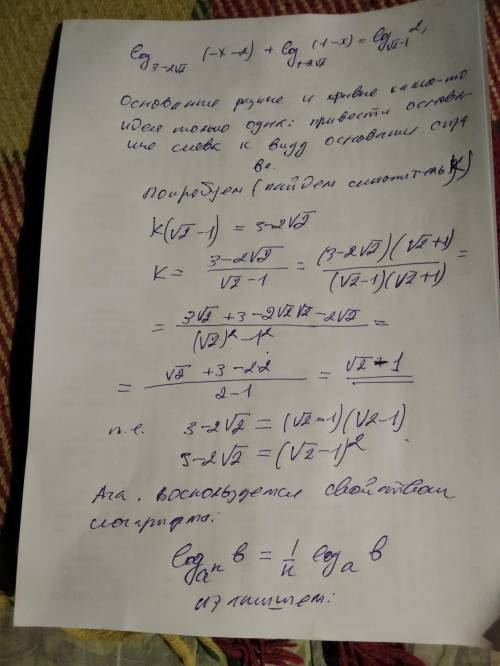 log₃₋₂√₂ (-x-2) + log (1-x) = log√₂₋₁ 2,
Основание разные и кривые какие-то
идея только одна: привести основа-
ние слева к виду основания спра
ва.
Попробуем (найдем множитель K)
K(√2-1) = 3-2√2
K = (3-2√2)/(√2-1) = ((3-2√2)(√2+1))/((√2-1)(√2+1)) =
= (3√2+3-2√2√2-2√2)/((√2)²-1²) =
= (√2+3-2·2)/(2-1) = √2-1
т.е. 3-2√2 = (√2-1)(√2-1)
3-2√2 = (√2-1)²
Ага, воспользуемся свойством
логарифма:
log_aⁿ b = 1/n log_a b